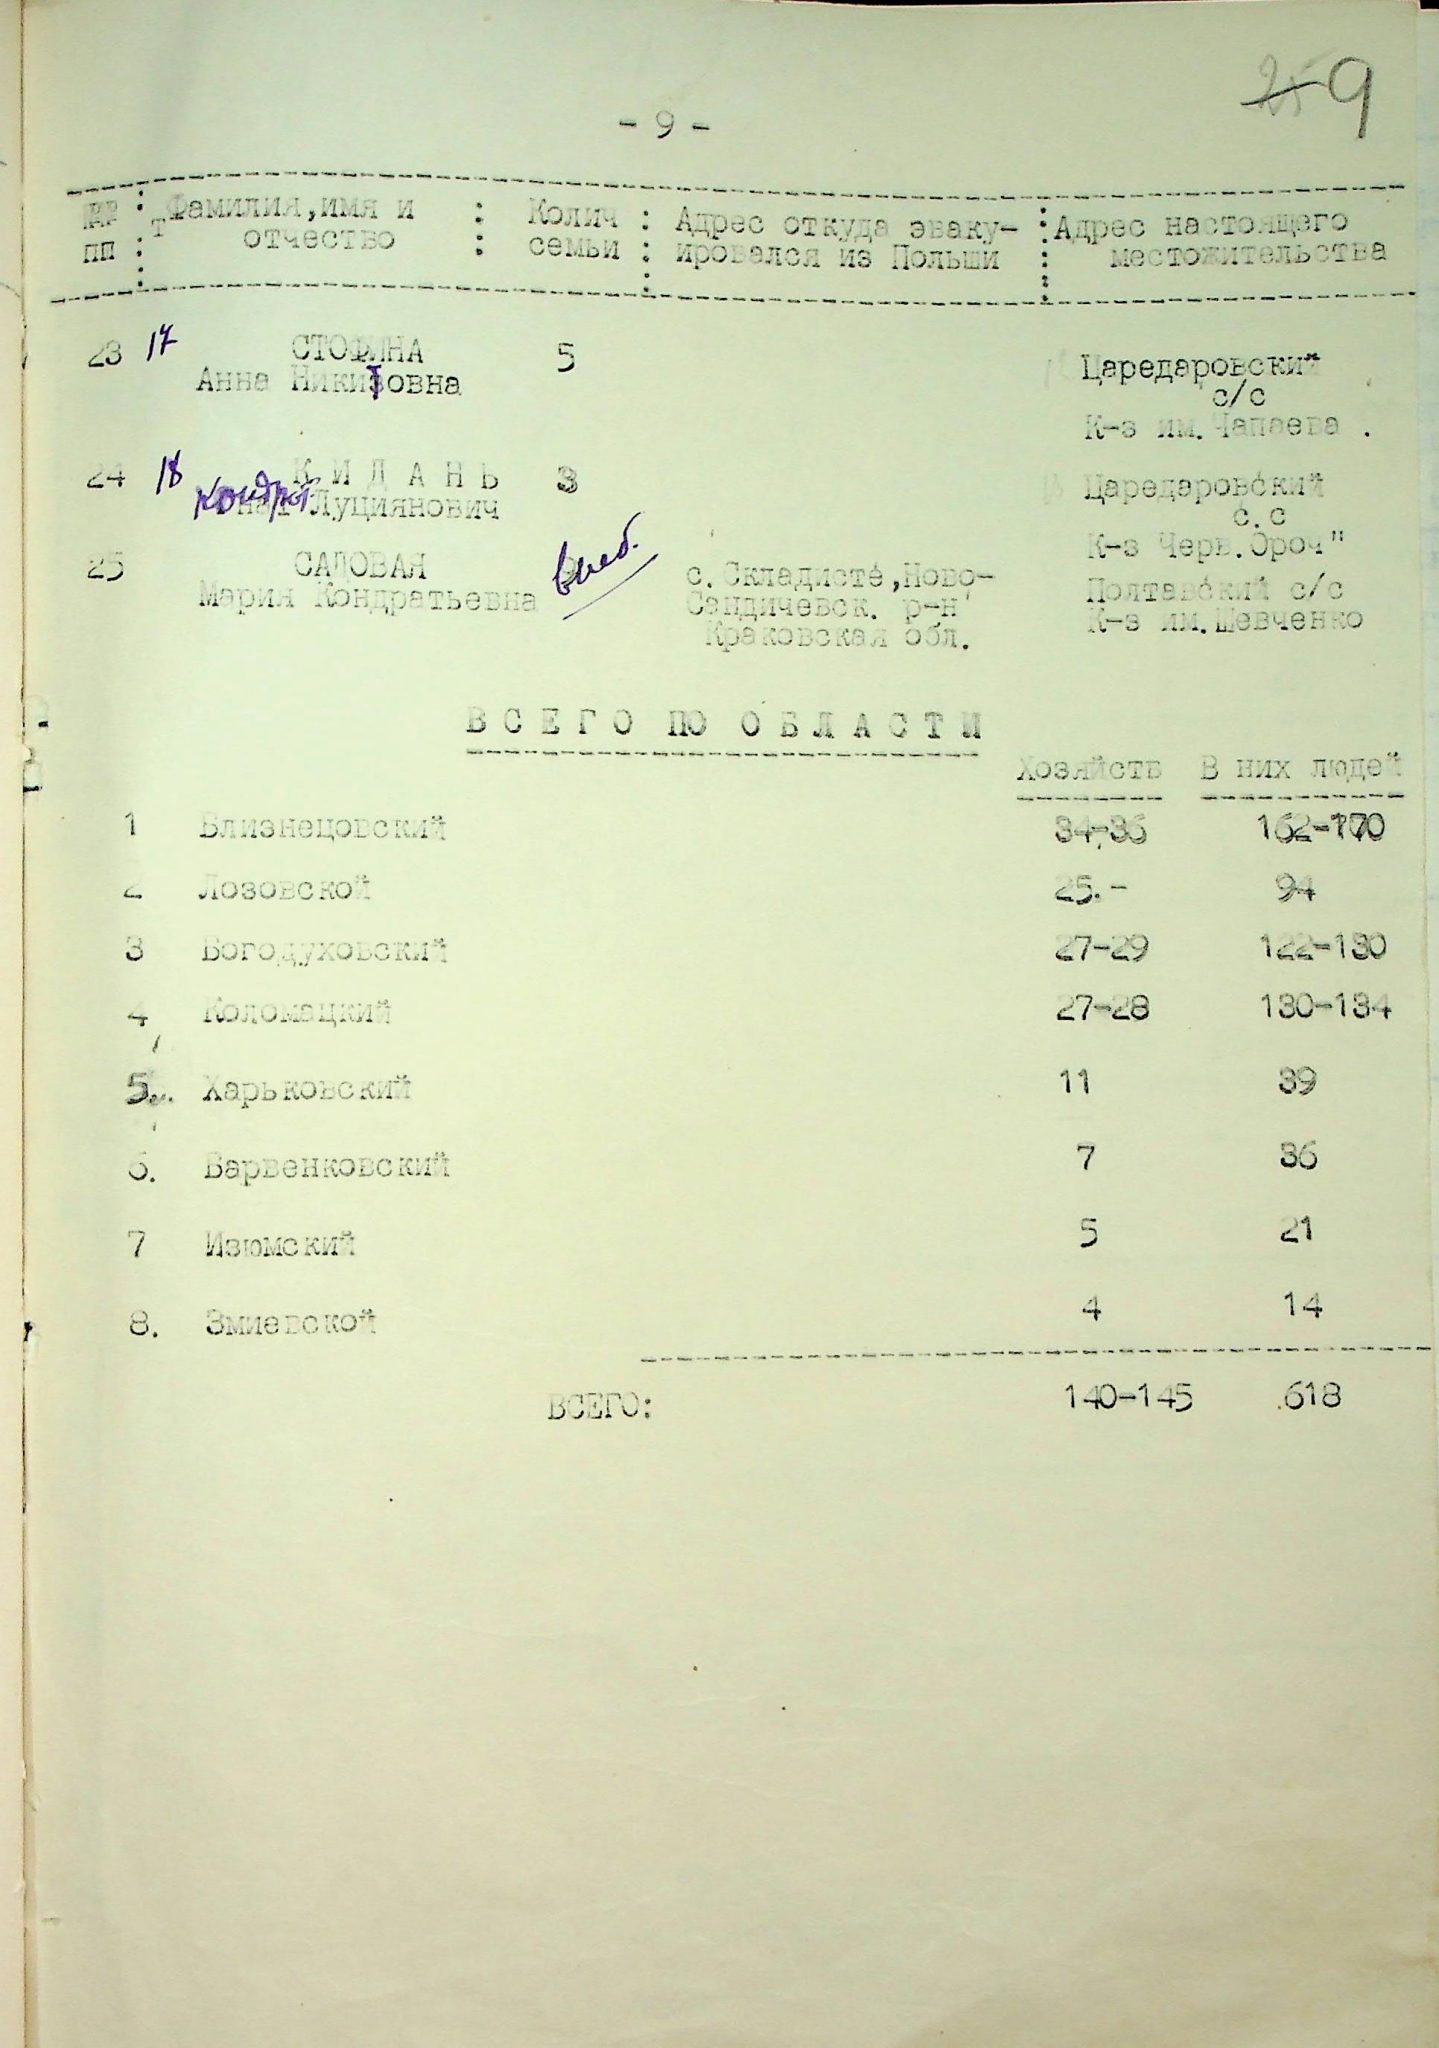 9
- 9 -
№№ : Фамилия,имя и : Колич : Адрес откуда эваку- : Адрес настоящего
пп : отчество : семьи : ировался из Польши : местожительства
23 17 СТОФИНА 5 Царедаровский
Анна Никитовна с/с
К-з им.Чапаева .
24 18 К И Д А Н Ь 3 Царедаровский
Кондрат Луциянович с.с
К-з Черв.Ороч"
25 САДОВАЯ с.Складисте,Ново- Полтавский с/с
Мария Кондратьевна Сандичевск. р-н К-з им.Шевченко
Краковская обл.
В С Е Г О ПО О Б Л А С Т И
Хозяйств В них людей
1 Близнецовский 34-36 162-170
2 Лозовской 25.- 94
3 Богодуховский 27-29 122-130
4 Коломацкий 27-28 130-134
5. Харьковский 11 39
6. Барвенковский 7 36
7 Изюмский 5 21
8. Змиевской 4 14
ВСЕГО: 140-145 618